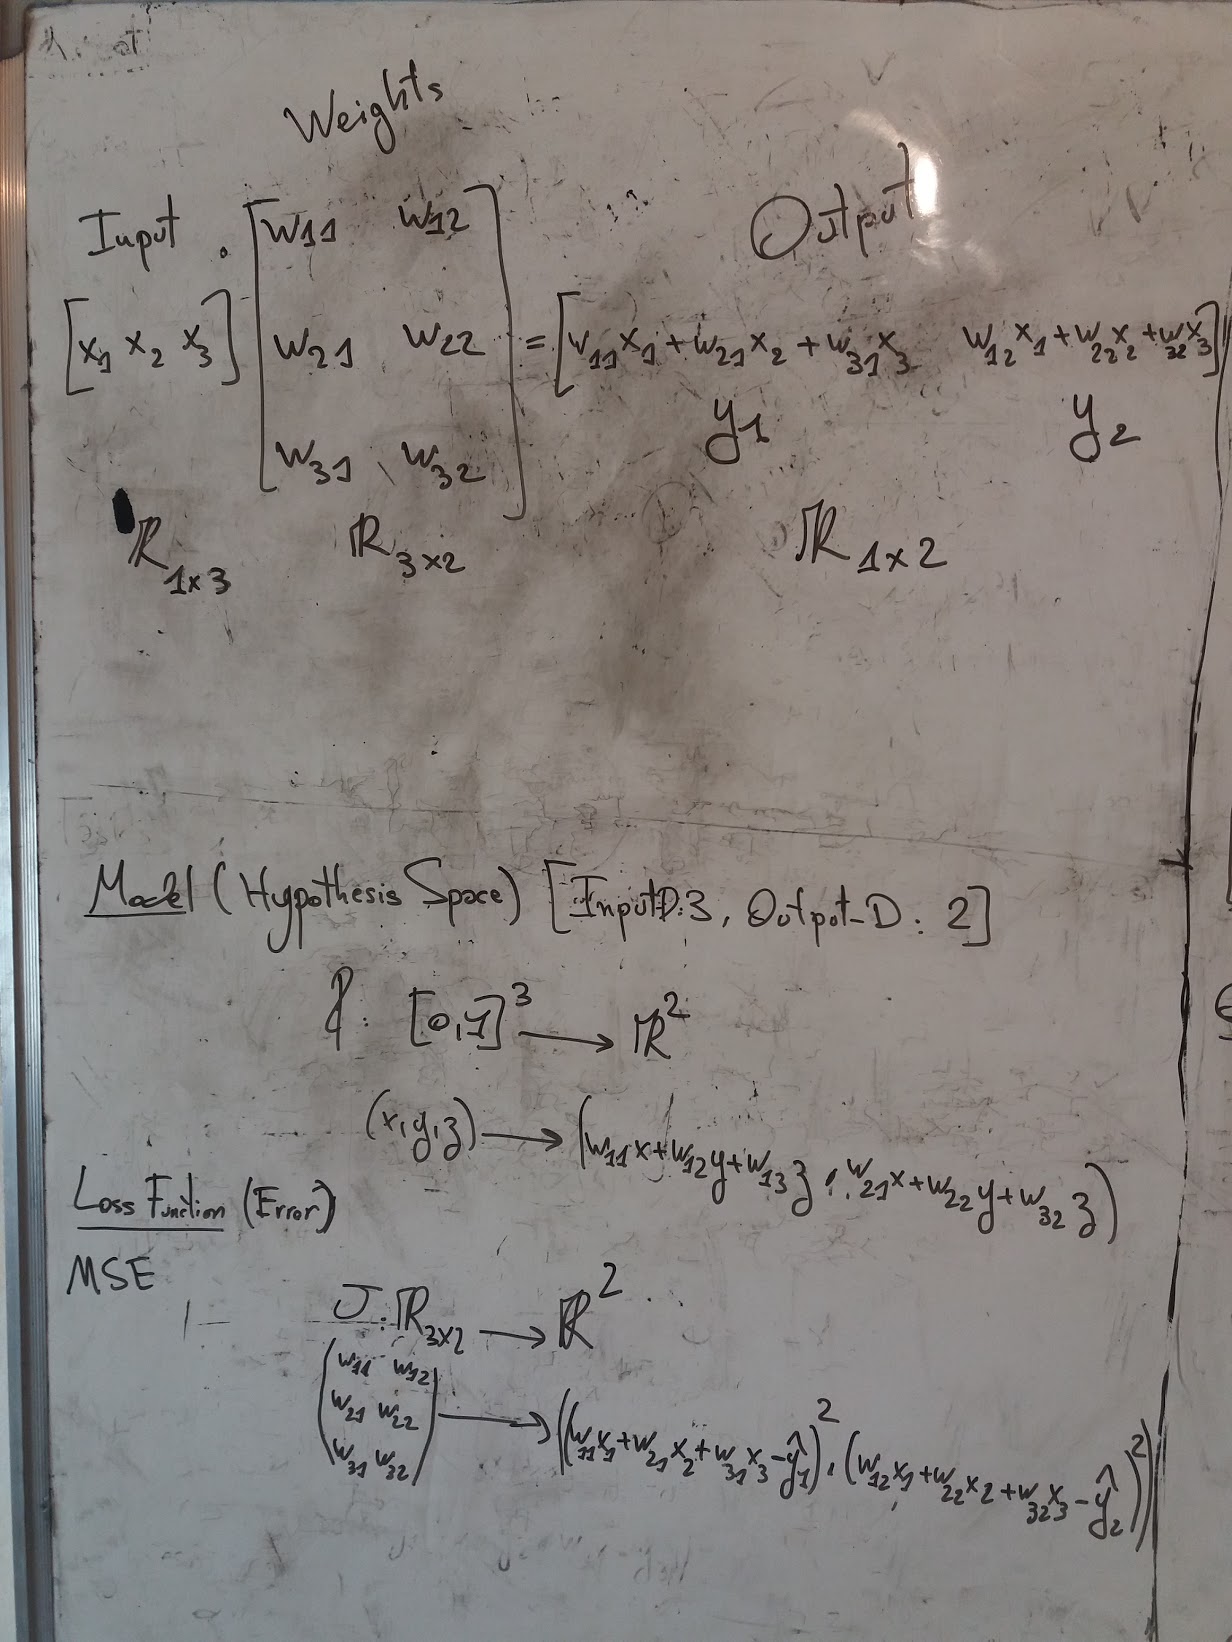 Weights
Input . [w11 w12 Output
[x1 x2 x3] w21 w22 = [w11x1 + w21x2 + w31x3 w12x1 + w22x2 + w32x3]
w31 w32] y1 y2
ℝ1x3 ℝ3x2 ℝ1x2
Model (Hypothesis Space) [InputD:3, Output-D: 2]
f: [0,1]^3 → ℝ^2
(x,y,z) → (w11x+w12y+w13z, w21x+w22y+w32z)
Loss Function (Error)
MSE
J: ℝ3x2 → ℝ^2
(w11 w12
w21 w22 → ((w11x1+w21x2+w31x3-ŷ1)^2, (w12x1+w22x2+w32x3-ŷ2)^2)
w31 w32)